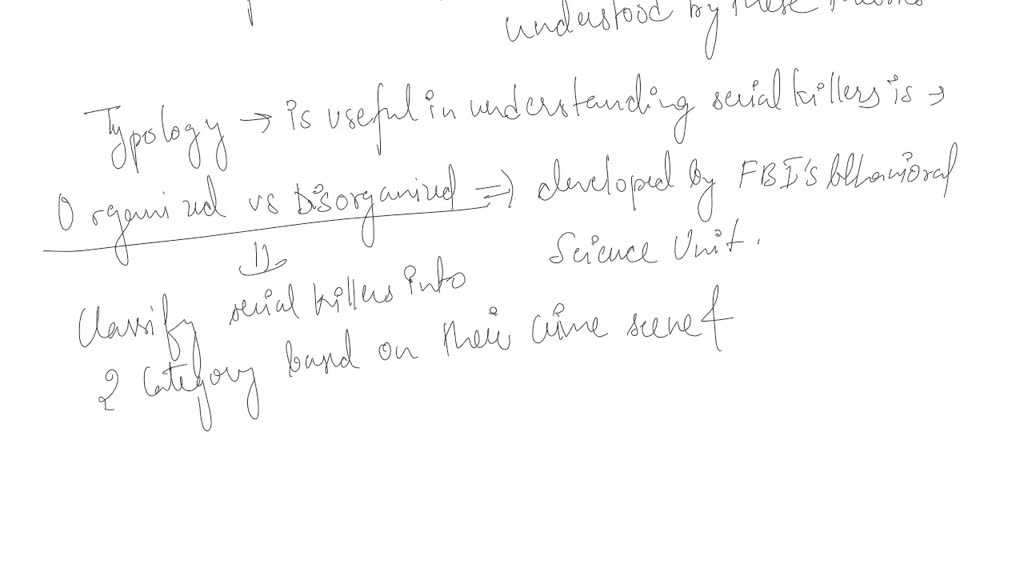 understood by these
Typology → is useful in understanding serial killers is →
Organized vs Disorganized ⇒ developed by FBI's behavioral
Science Unit.
⇓
Classify serial killers into
2 Category based on their crime scene &